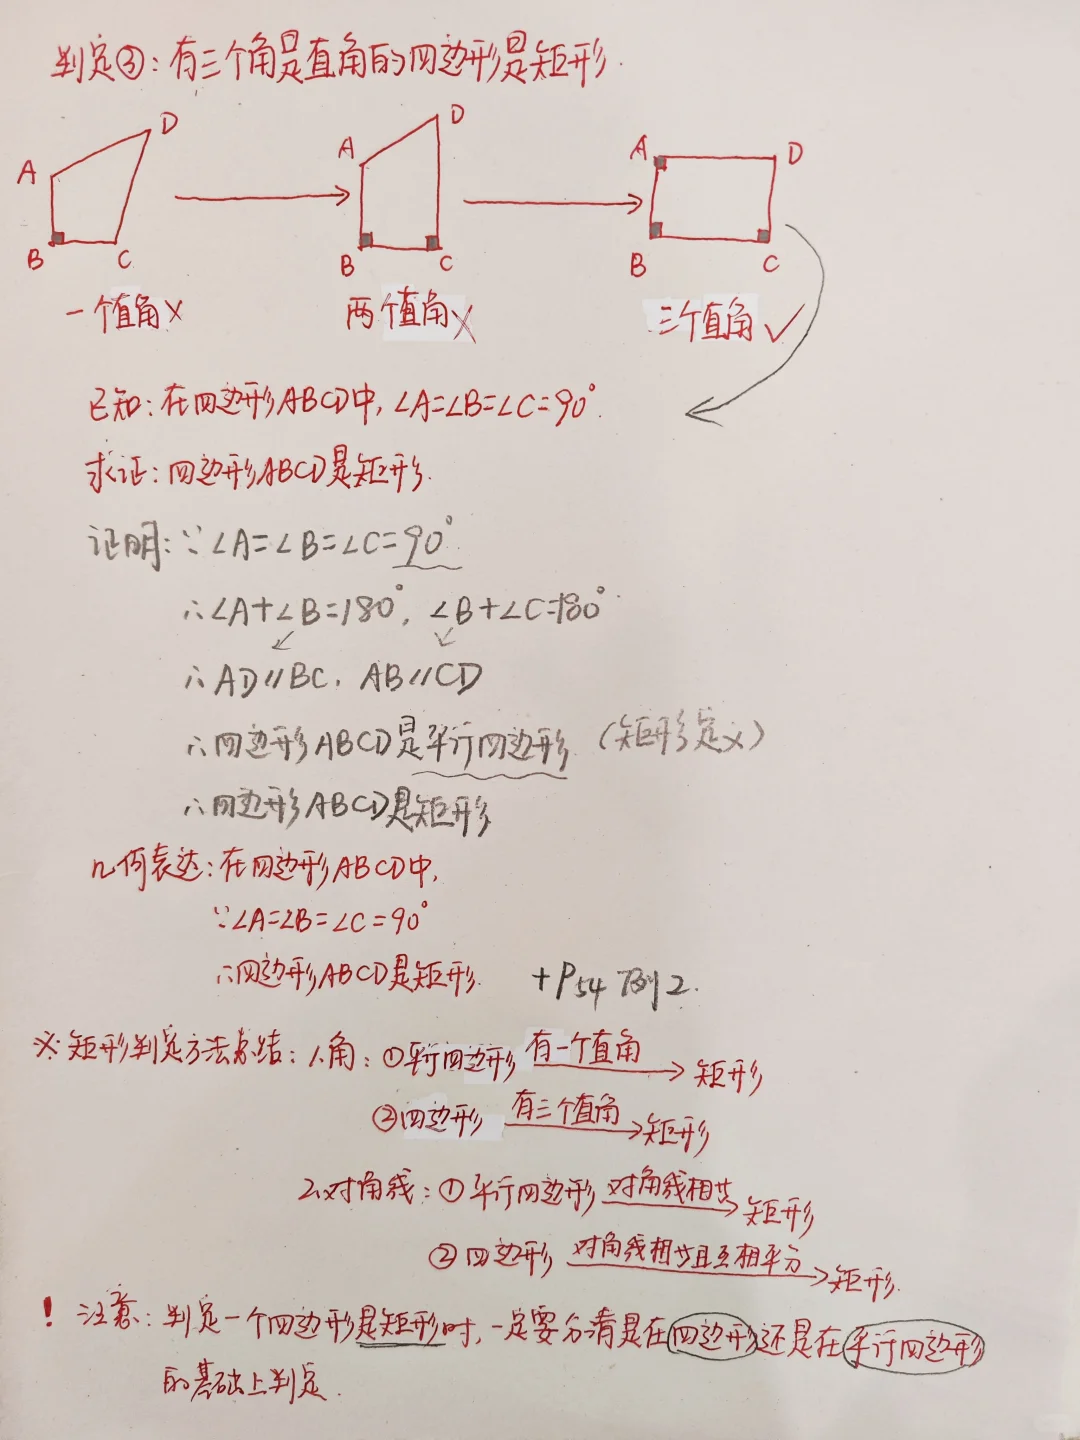 判定③:有三个角是直角的四边形是矩形.
A D B C
A D B C
A D B C
一个直角×
两个直角×
三个直角✓
已知:在四边形ABCD中,∠A=∠B=∠C=90°.
求证:四边形ABCD是矩形.
证明:∵∠A=∠B=∠C=90°
∴∠A+∠B=180°,∠B+∠C=180°.
∴AD∥BC,AB∥CD
∴四边形ABCD是平行四边形(矩形定义)
∴四边形ABCD是矩形
几何表达:在四边形ABCD中,
∵∠A=∠B=∠C=90°
∴四边形ABCD是矩形.
+P54例2.
※矩形判定方法总结:1.角:①平行四边形 有一个直角→矩形
②四边形 有三个直角→矩形
2.对角线:①平行四边形 对角线相等→矩形
②四边形 对角线相等且互相平分→矩形.
! 注意:判定一个四边形是矩形时,一定要分清是在四边形还是在平行四边形
的基础上判定.